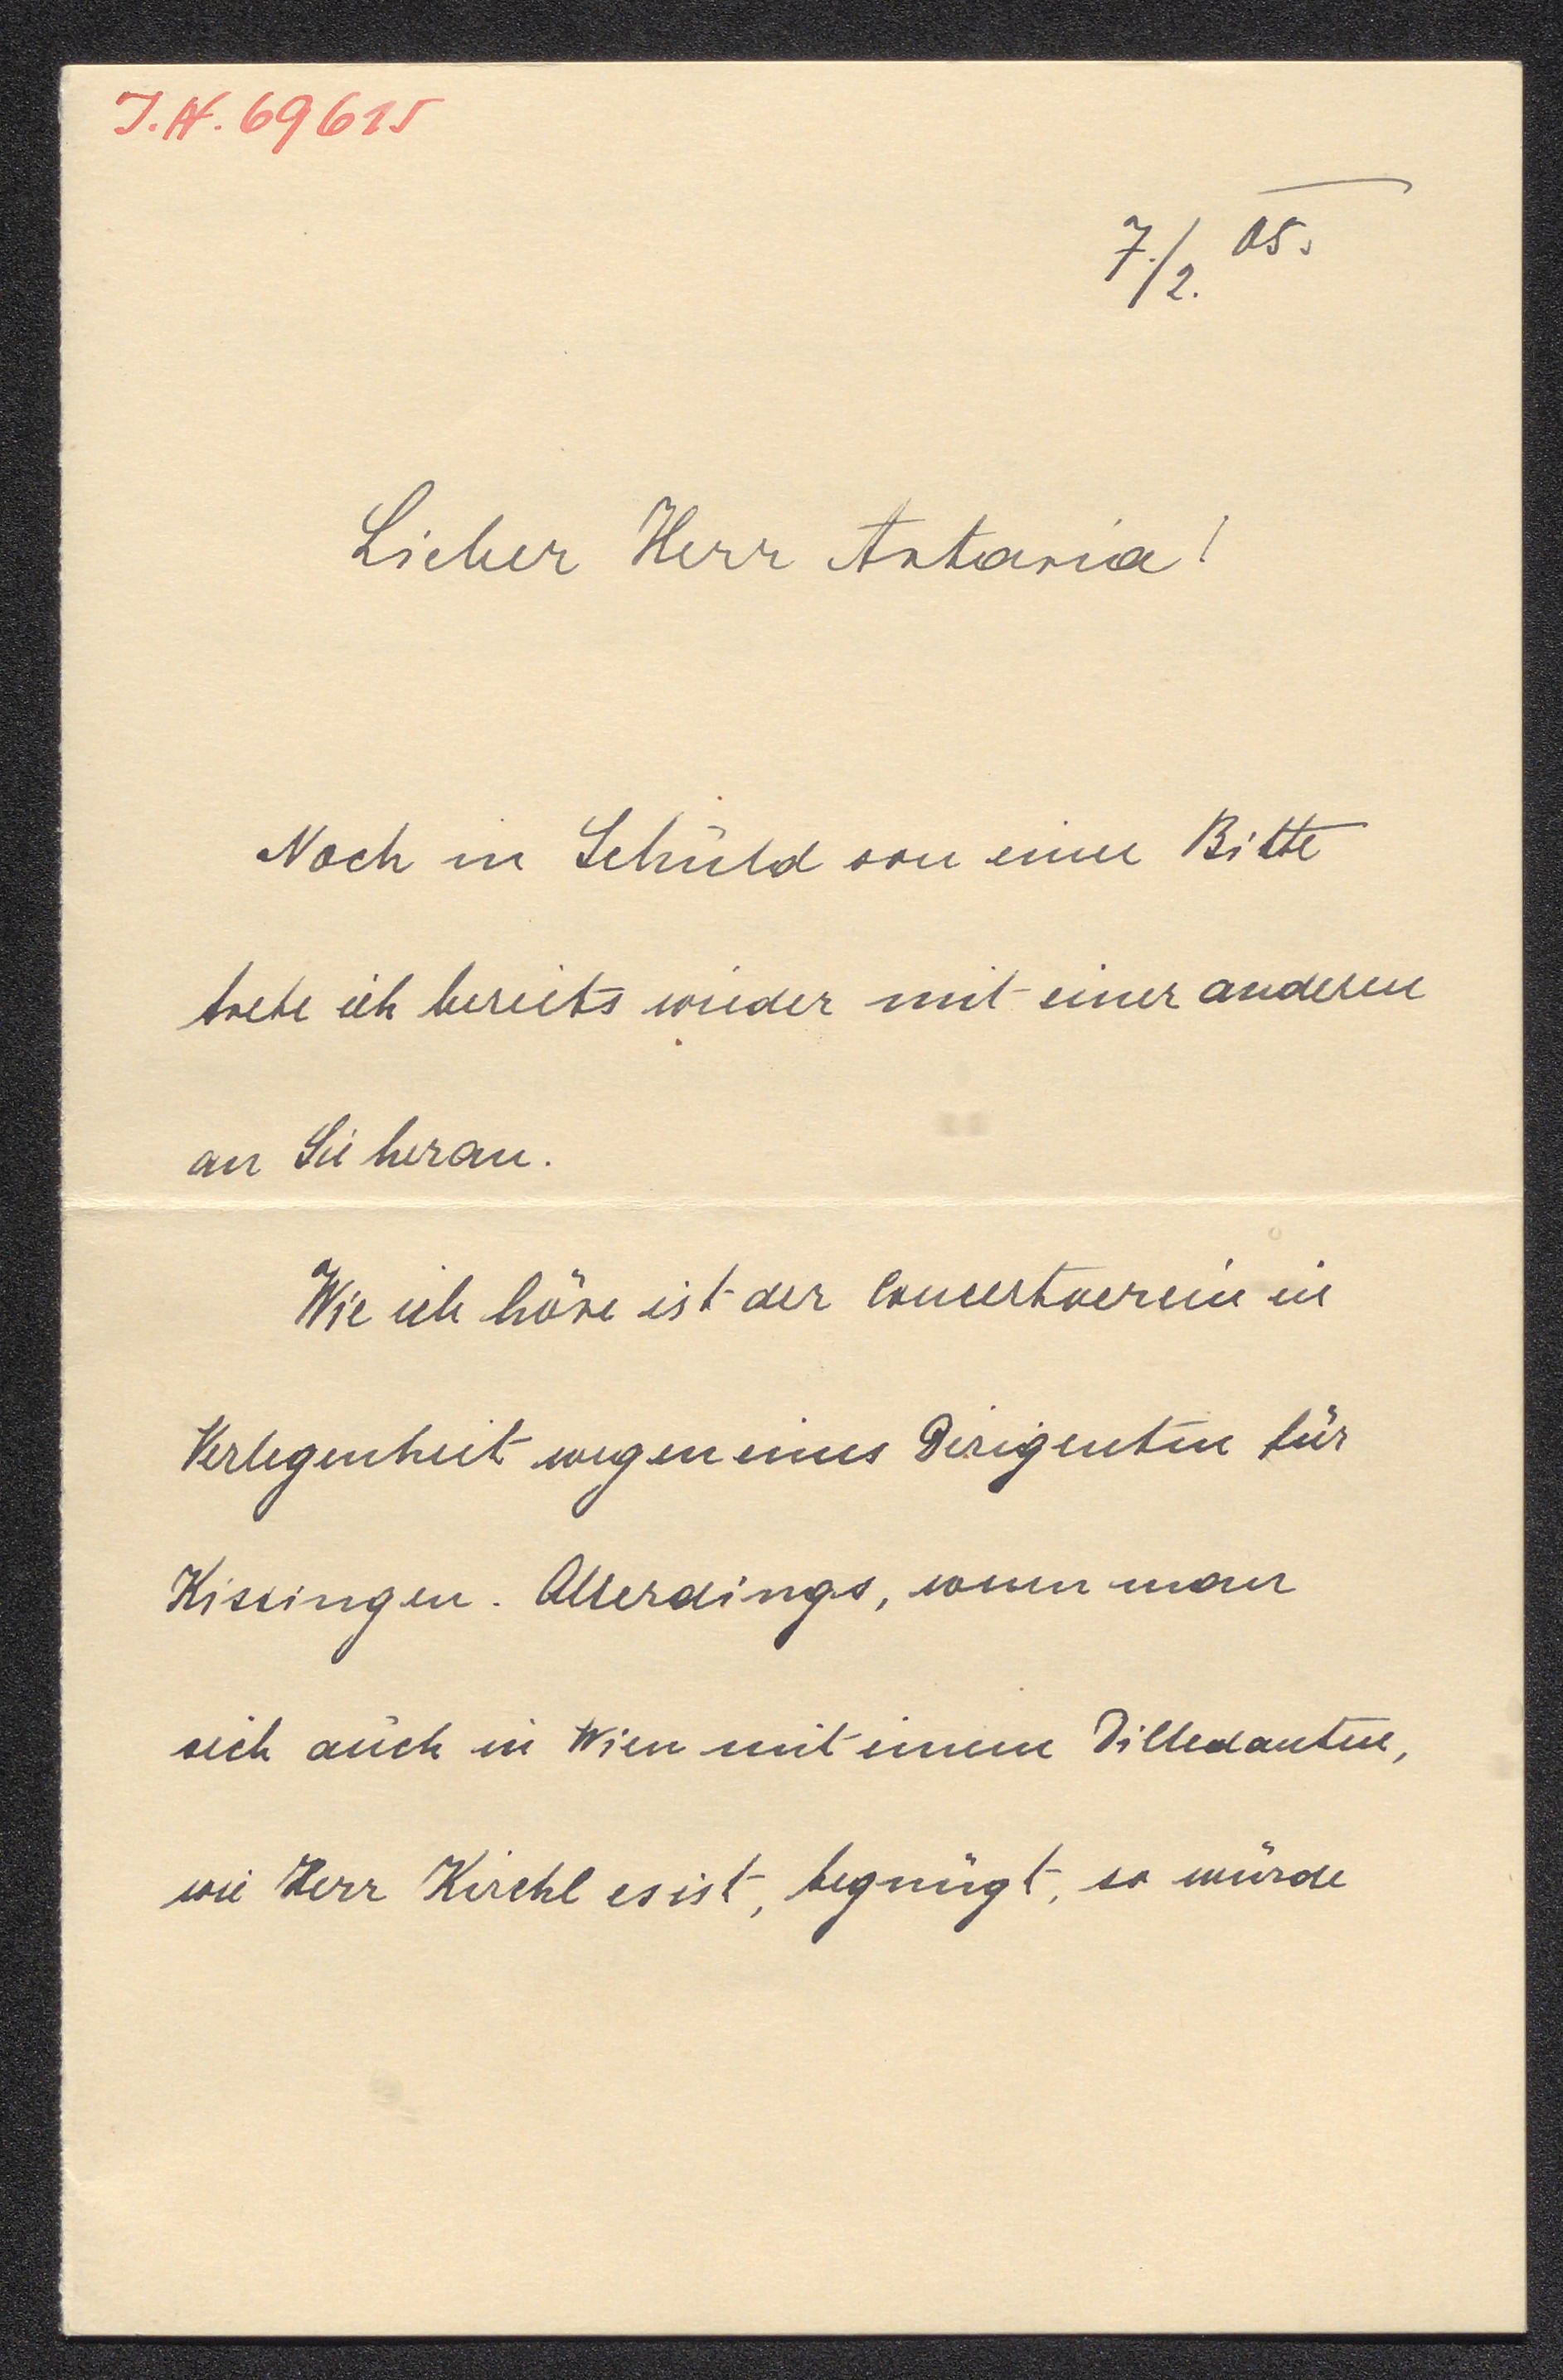 I.N. 69615
7./2. 05.
Lieber Herr Astaria!
Noch in Schuld von einer Bitte
trete ich bereits wieder mit einer anderen
an Sie heran.
Wie ich höre ist der Concertverein in
Verlegenheit wegen eines Dirigenten für
Kissingen. Allerdings, wenn man
sich auch in Wien mit einem Dilledanten,
wie Herr Kirchl es ist, begnügt, so würde